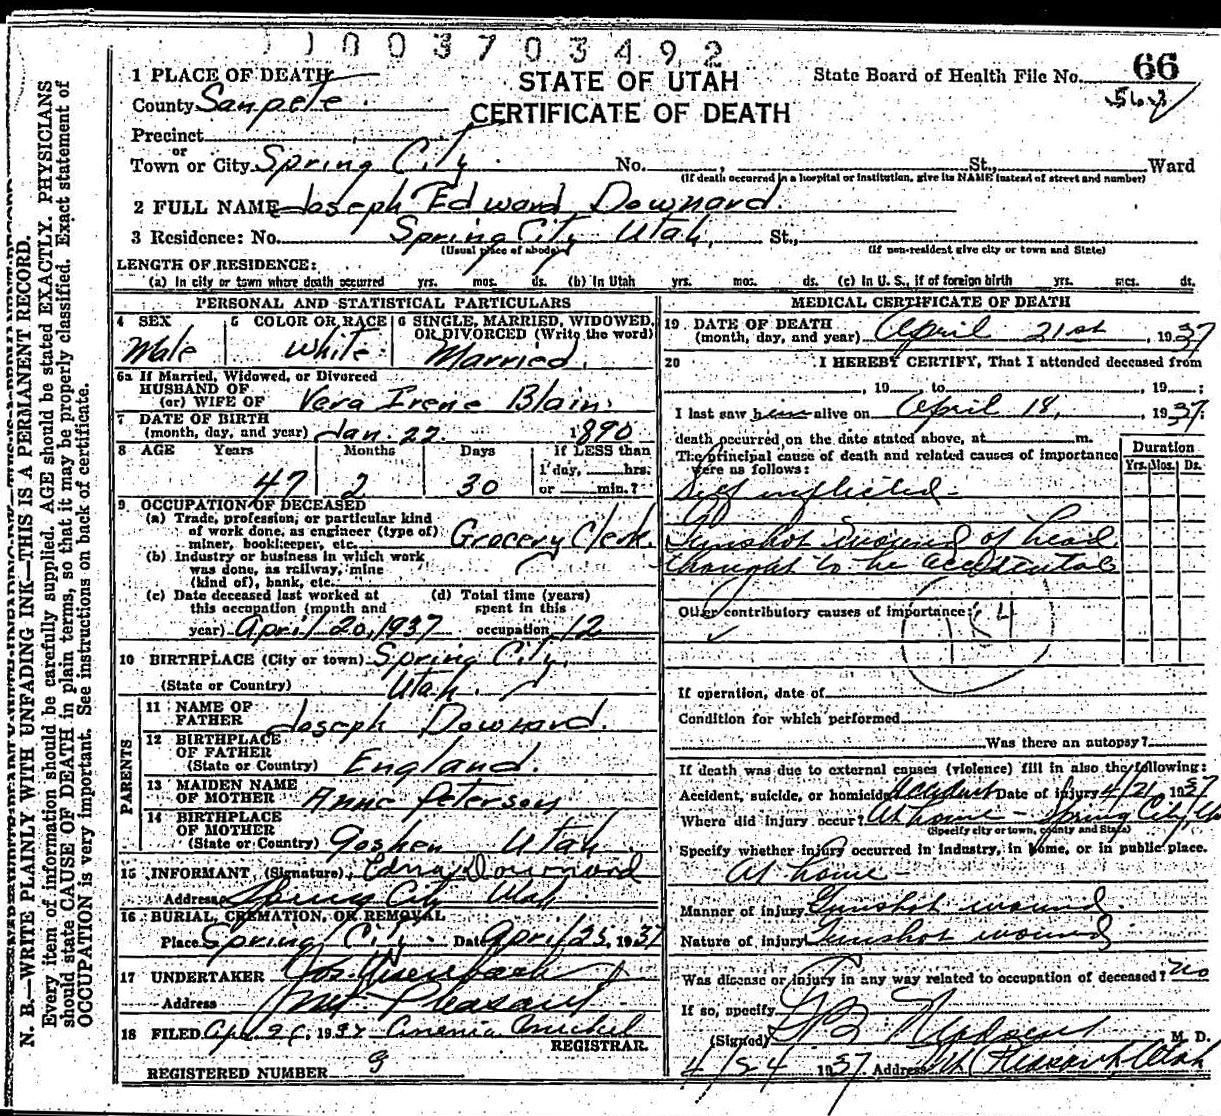 1003703492
1 PLACE OF DEATH
STATE OF UTAH
CERTIFICATE OF DEATH
State Board of Health File No. 66
County Sanpete
Precinct
or
Town or City Spring City No. , St., Ward
(If death occurred in a hospital or institution, give its NAME instead of street and number)
2 FULL NAME Joseph Edward Downard.
3 Residence: No. Spring City Utah, St.,
(Usual place of abode) (If non-resident give city or town and State)
LENGTH OF RESIDENCE:
(a) In city or town where death occurred yrs. mos. ds. (b) In Utah yrs. mos. ds. (c) In U. S., if of foreign birth yrs. mos. ds.
PERSONAL AND STATISTICAL PARTICULARS
4 SEX
Male
5 COLOR OR RACE
White
6 SINGLE, MARRIED, WIDOWED,
OR DIVORCED (Write the word)
Married.
6a If Married, Widowed, or Divorced
HUSBAND OF
(or) WIFE OF Vera Irene Blain.
7 DATE OF BIRTH
(month, day, and year) Jan. 22 1890
8 AGE Years Months Days If LESS than
1 day, hrs.
or min.?
47 2 30
9 OCCUPATION OF DECEASED
(a) Trade, profession, or particular kind
of work done, as engineer (type of)
miner, bookkeeper, etc. Grocery Clerk.
(b) Industry or business in which work
was done, as railway, mine
(kind of), bank, etc.
(c) Date deceased last worked at
this occupation (month and
year) April 20, 1937
(d) Total time (years)
spent in this
occupation 12
10 BIRTHPLACE (City or town) Spring City,
(State or Country) Utah.
PARENTS
11 NAME OF
FATHER Joseph Downard.
12 BIRTHPLACE
OF FATHER
(State or Country) England.
13 MAIDEN NAME
OF MOTHER Anne Peterson
14 BIRTHPLACE
OF MOTHER
(State or Country) Goshen Utah.
15 INFORMANT (Signature) Edna Downard
Address Spring City Utah
16 BURIAL, CREMATION, OR REMOVAL
Place Spring City Date April 25, 1937
17 UNDERTAKER
Address Mt Pleasant
18 FILED Apr. 26, 1937
REGISTRAR.
REGISTERED NUMBER 9
MEDICAL CERTIFICATE OF DEATH
19 DATE OF DEATH
(month, day, and year) April 21st, 1937
20 I HEREBY CERTIFY, That I attended deceased from
, 19 , to , 19 ;
I last saw him alive on April 18, 1937.
death occurred on the date stated above, at m.
The principal cause of death and related causes of importance
were as follows:
Duration
Yrs. Mos. Ds.
Self inflicted
Gunshot wound of head
thought to be accidental
Other contributory causes of importance:
184
If operation, date of
Condition for which performed
Was there an autopsy?
If death was due to external causes (violence) fill in also the following:
Accident, suicide, or homicide Accident Date of injury 4/21, 1937
Where did injury occur? At home - Spring City, Ut
(Specify city or town, county and State)
Specify whether injury occurred in industry, in home, or in public place.
At home
Manner of injury Gunshot wound.
Nature of injury Gunshot wound
Was disease or injury in any way related to occupation of deceased? no
If so, specify
(Signed) M. D.
4/24 1937 Address Mt Pleasant, Utah
N. B.—WRITE PLAINLY WITH UNFADING INK—THIS IS A PERMANENT RECORD.
Every item of information should be carefully supplied. AGE should be stated EXACTLY. PHYSICIANS
should state CAUSE OF DEATH in plain terms, so that it may be properly classified. Exact statement of
OCCUPATION is very important. See instructions on back of certificate.